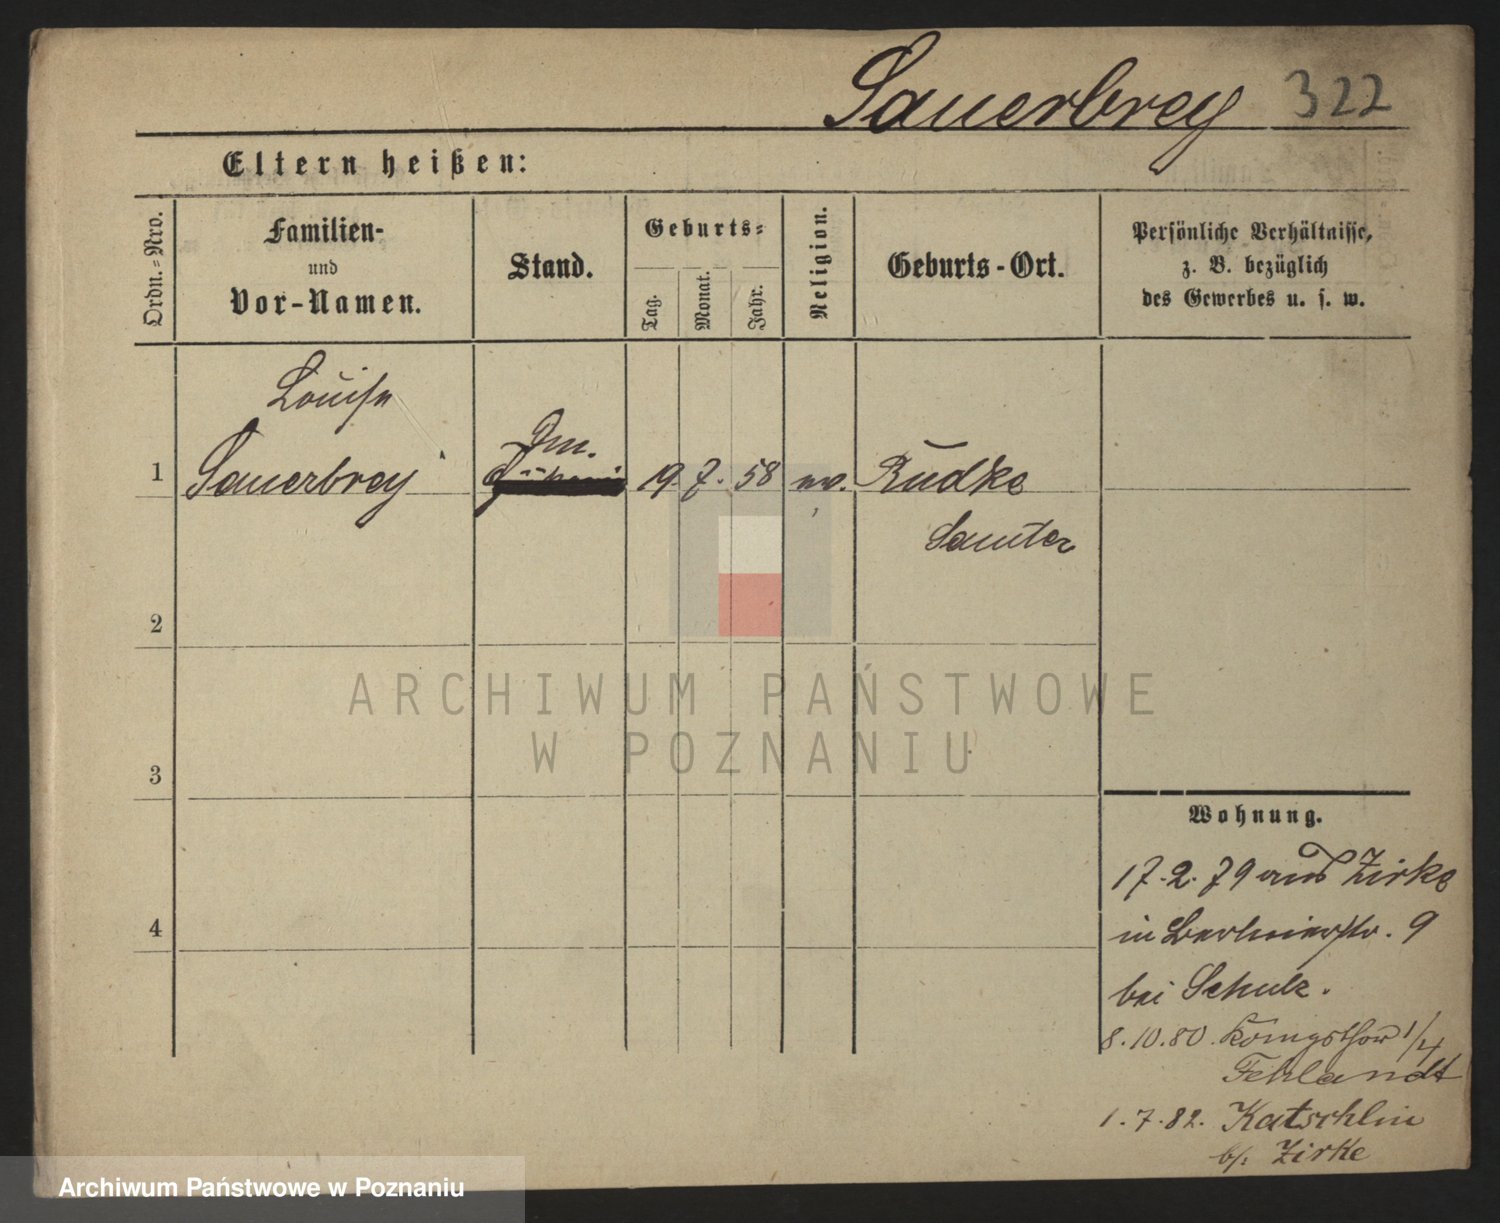 Sauerbrey 322
Eltern heißen:
Ordn.-Nro.
Familien-
und
Vor-Namen.
Stand.
Geburts-
Tag.
Monat.
Jahr.
Religion.
Geburts-Ort.
Persönliche Verhältnisse,
z. B. bezüglich
des Gewerbes u. s. w.
Louise
1 Sauerbrey 19 7. 58 ev. Rudke
Samter
2
3
4
Wohnung.
17. 2. 79 aus Zirke
in Berlinerstr. 9
bei Schulz.
8. 10. 80. Königsthor 1/4
Fehlandt
1. 7. 82. Katschlin
b/: Zirke
ARCHIWUM PAŃSTWOWE
W POZNANIU
Archiwum Państwowe w Poznaniu